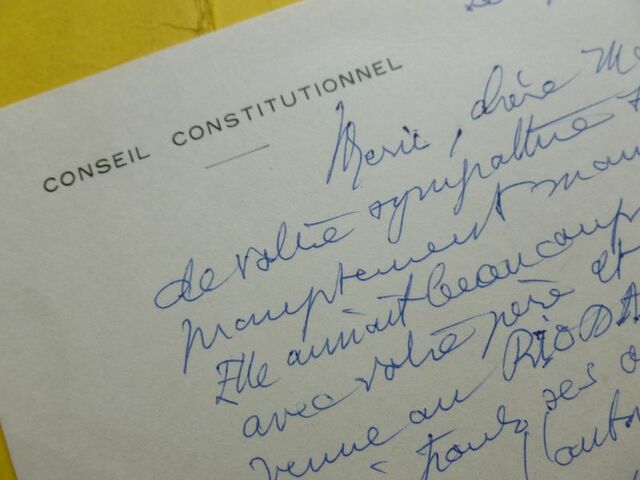 CONSEIL CONSTITUTIONNEL
Merci, chère
de votre sympathie
promptement
Elle aimait beaucoup
avec votre père et
venue au RIODA
pour ses